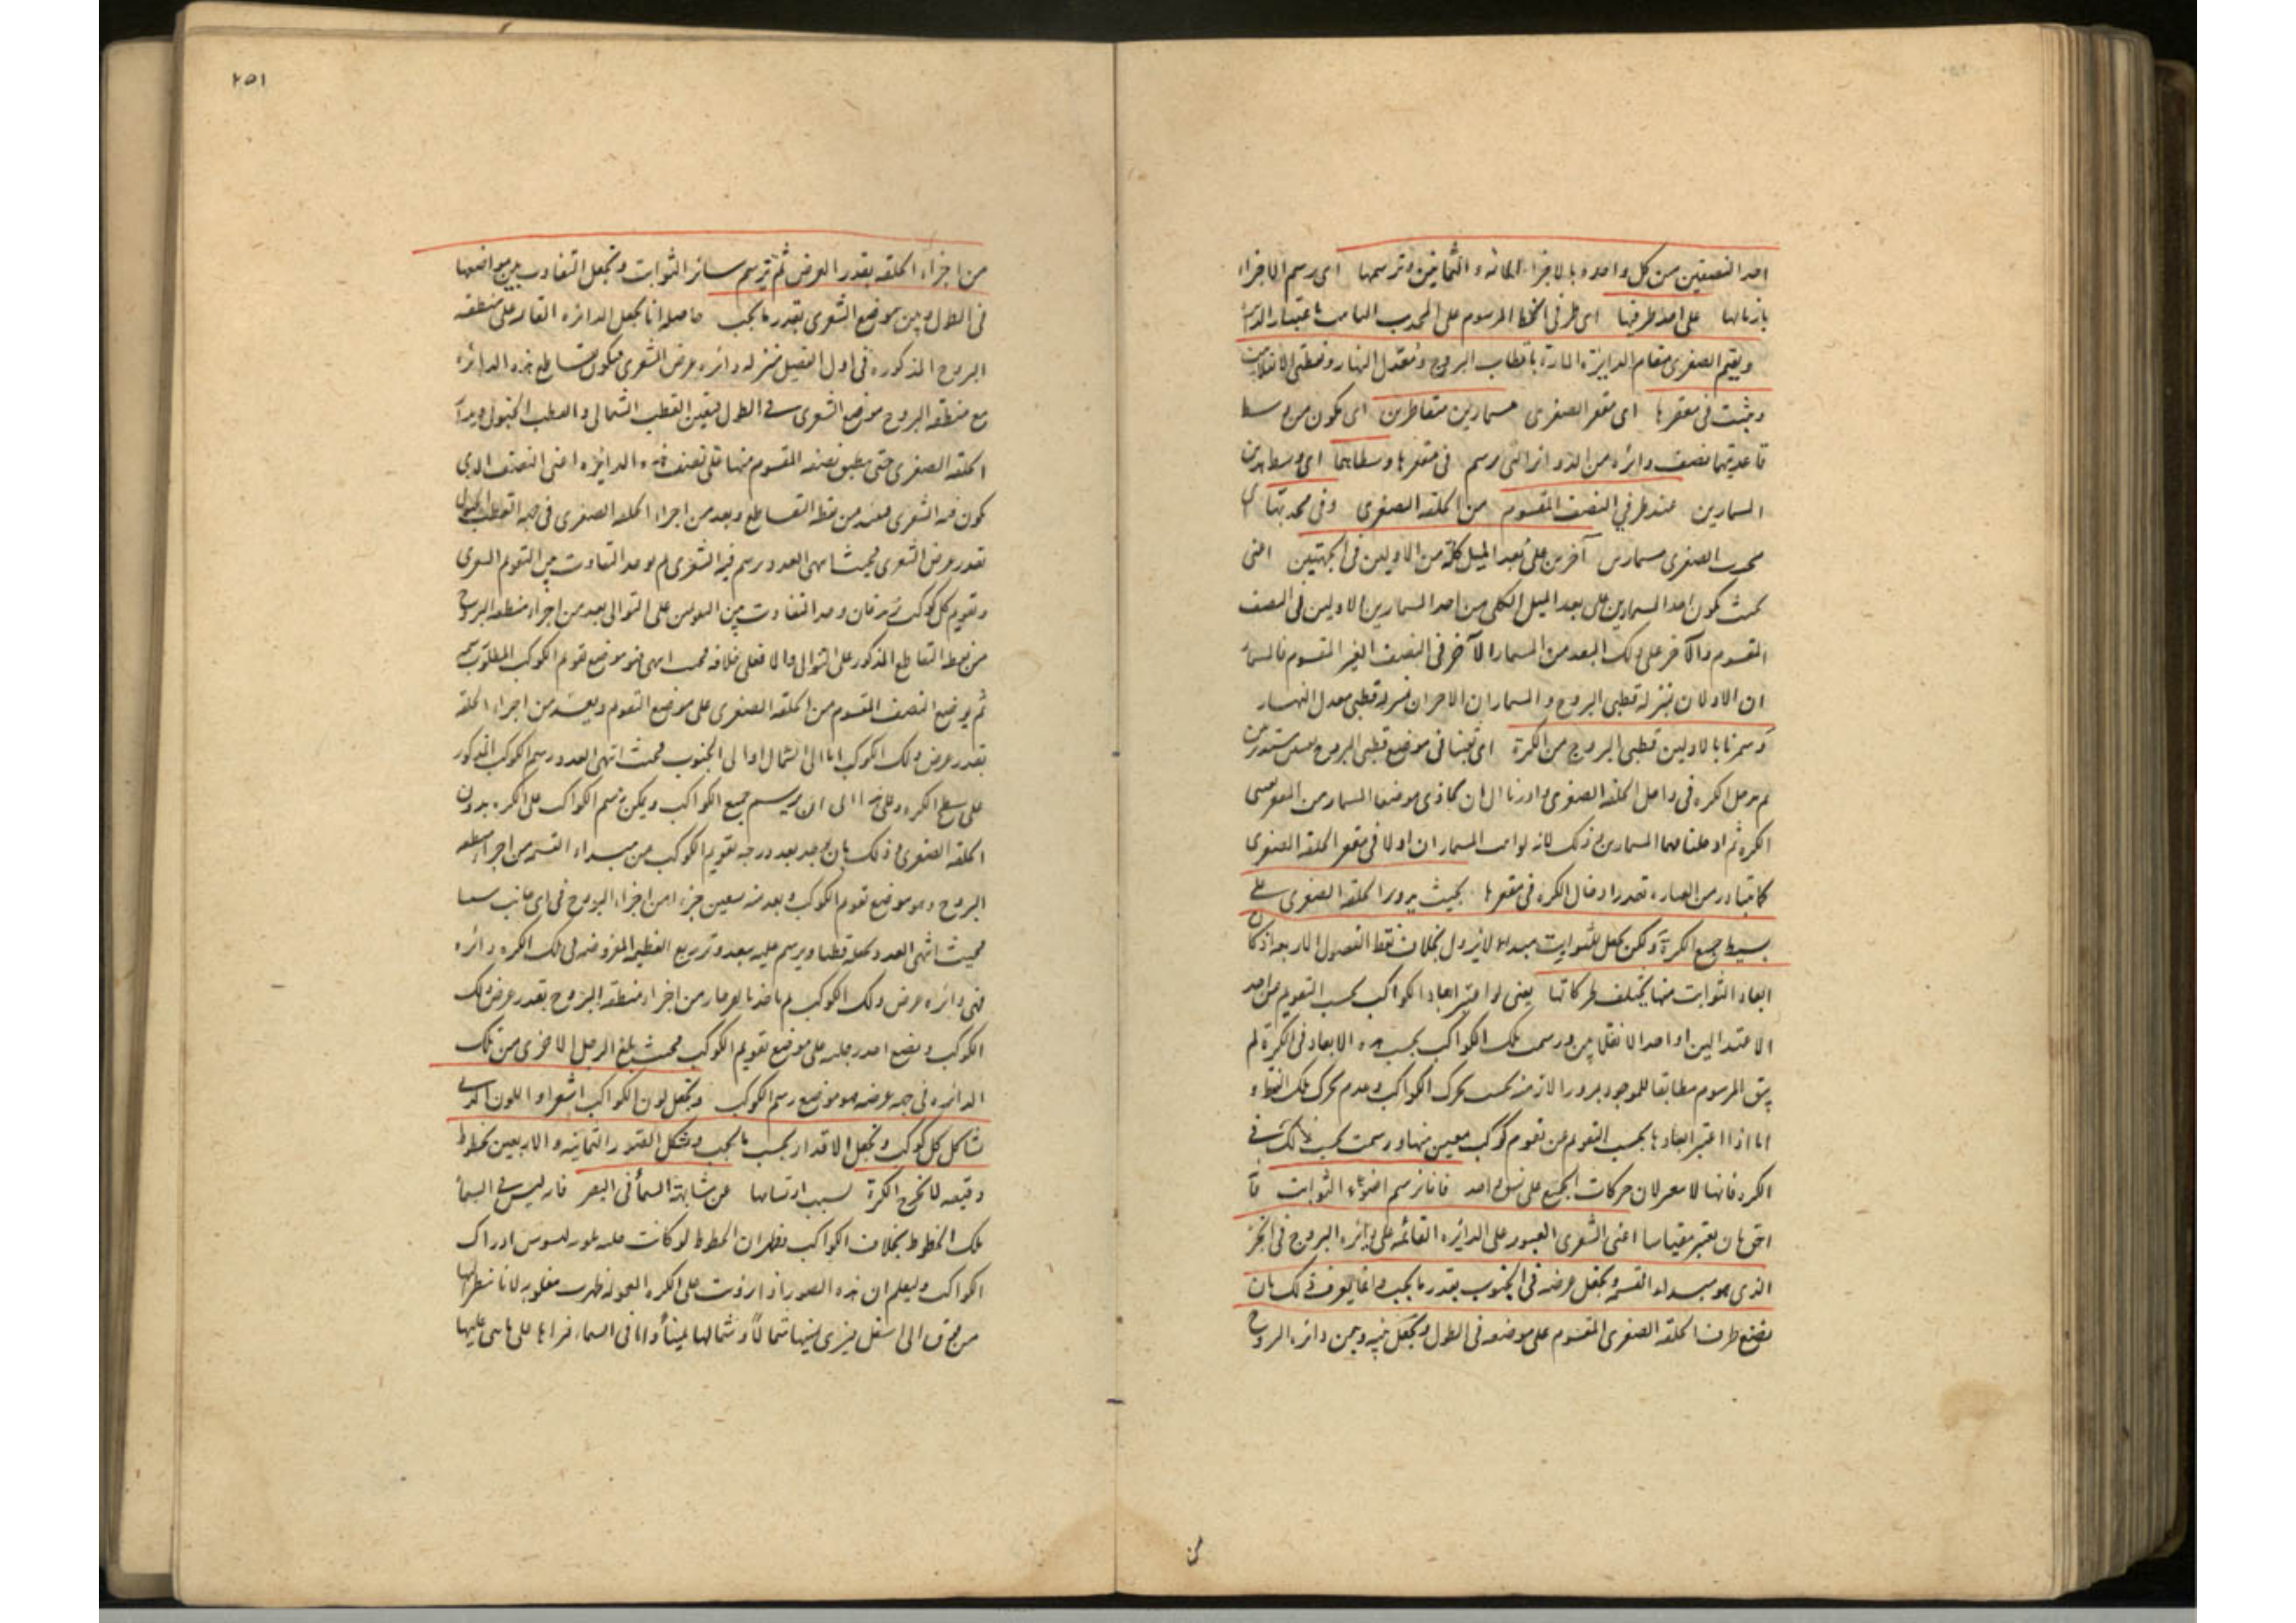 احد النصفين من كل واحدة بالاجزاء المائة والثمانين وترسمها اى رسم الاجزاء
بازمانها على احد طرفيها اى طرفى الخط المرسوم على المحدب
ويقيم الصغرى مقام الدايرة المارة باقطاب البروج ومعدل النهار ونقطتى الانقلابين
ويثبت فى مقعرها اى مقعر الصغرى مسمارين متقاطرين اى يكون من وسط
قاعدتيهما نصف دائرة من الدوائر التى رسم فى مقعرها وسطاهما اى وسطا هذين
المسمارين عند طرفي النصف المقسوم من الحلقة الصغرى وفى محدبها اى
محدب الصغرى مسمارين آخرين على بعد الميل كله من الاولين فى الجهتين اعنى
بحيث يكون احد المسمارين على بعد الميل الكلى من احد المسمارين الاولين فى النصف
المقسوم والآخر على ذلك البعد من المسمار الآخر فى النصف الغير المقسوم فالمسمار
ان الاولان بمنزلة قطبى البروج والمسماران الاخران بمنزلة قطبى معدل النهار
وسمرنا بالاولين قطبى البروج من الكرة اى ثقبنا فى موضع قطبى البروج
ثم ندخل الكرة فى داخل الحلقة الصغرى وادرنا الى ان يحاذى موضعا المسمار من المقعر
الكرة ثم ادخلنا فيهما المسمارين وذلك لانه لو اثبت المسماران اولا فى مقعر الحلقة الصغرى
كما يتبادر من العبارة تعذر ادخال الكرة فى مقعرها بحيث يدور الحلقة الصغرى على
بسيط جميع الكرة ولكن يجعل للثوابت مبدء لا يزول بخلاف نقط الفصول الاربعة اذ كان
ابعاد الثوابت منها يختلف بحركاتها يعنى لو اعتبر ابعاد الكواكب بحسب التقويم من احد
الاعتدالين او احد الانقلابين ورسمت تلك الكواكب بحسب هذه الابعاد فى الكرة لم
يبق المرسوم مطابقا للموجود بمرور الازمنة بحسب تحرك الكواكب وعدم تحرك تلك النقط
اما اذا اعتبر ابعادها بحسب التقويم من تقويم كوكب معين منها ورسمت بحسب ذلك فى
الكرة فانها لا يتغير لان حركات الجميع على نسق واحد فانا نرسم اضواء الثوابت
احق بان يعتبر مقياسا اعنى الشعرى العبور على الدايرة القائمة على دائرة البروج فى الجزء
الذى هو مبداء القسمة ويجعل عرضه فى الجنوب بقدر ما يجب وانما يعرف ذلك بان
يضع طرف الحلقة الصغرى المقسوم على موضعه فى الطول ويجعل بينه وبين دائرة البروج
٢٥١
من اجزاء الحلقة بقدر العرض ثم ترسم سائر الثوابت ويجعل التفاوت بين مواضعها
فى الطول وبين موضع الشعرى بقدر ما يجب حاصله انا نجعل الدائرة القائمة على منطقة
البروج المذكورة فى اول الفصل بمنزلة دائرة عرض الشعرى فيكون تقاطع هذه الدائرة
مع منطقة البروج موضع الشعرى فى الطول فيعين القطب الشمالى والقطب الجنوبى ويدار
الحلقة الصغرى حتى ينطبق نصفه المقسوم منها على نصف هذه الدائرة اعنى النصف الذى
يكون فيه الشعرى فيعد من نقطة التقاطع وبعد من اجزاء الحلقة الصغرى فى جهة القطب الجنوبى
بقدر عرض الشعرى فحيث انتهى العدد يرسم فيه الشعرى ثم يوجد التفاوت بين التقويم الشعرى
وتقويم كل كوكب فان وجد التفاوت بين التقويمين على التوالى يعد من اجزاء منطقة البروج
من نقطة التقاطع المذكور على التوالى والا فعلى خلافه فحيث انتهى فهو موضع تقويم الكوكب المطلوب
ثم يوضع النصف المقسوم من الحلقة الصغرى على موضع التقويم ويعد من اجزاء الحلقة
بقدر عرض ذلك الكوكب اما الى الشمال او الى الجنوب فحيث انتهى العدد رسم الكوكب المذكور
على سطح الكرة وعلى هذا الى ان يرسم جميع الكواكب ويمكن رسم الكواكب على الكرة بدون
الحلقة الصغرى وذلك بان يوجد بعد درجة تقويم الكوكب من مبداء القسمة من اجزاء منطقة
البروج وهو موضع تقويم الكوكب ويعد منه تسعين جزءا من اجزاء البروج فى اى جانب
فحيث انتهى العدد نجعله قطبا ويرسم عليه ببعد وتر ربع العظيمة المفروضة فى تلك الكرة دائرة
فهى دائرة عرض ذلك الكوكب ثم ياخذ بالفرجار من اجزاء منطقة البروج بقدر عرض ذلك
الكوكب ويضع احد رجليه على موضع تقويم الكوكب فحيث يبلغ الرجل الاخرى من تلك
الدائرة فى جهة عرضه هو موضع رسم الكوكب ويجعل لون الكواكب اشقر او اللون الذى
يشاكل كل كوكب ويجعل الاقدار بحسب ما يجب ويشكل الصور الثمانية والاربعين بخطوط
دقيقة لا يخرج الكرة بسبب ارتسامها عن مشابهة السماء فى البصر فانه ليس فى السماء
تلك الخطوط بخلاف الكواكب فظهر ان الخطوط لو كانت ادراك
الكواكب وليعلم ان هذه الصور اذا روئت على الكرة المعمولة ظهرت مقلوبة لانا ننظر اليها
من فوق الى اسفل فيرى يمينها شمالا وشمالها يمينا واما فى السماء فنراها على ما هى عليها